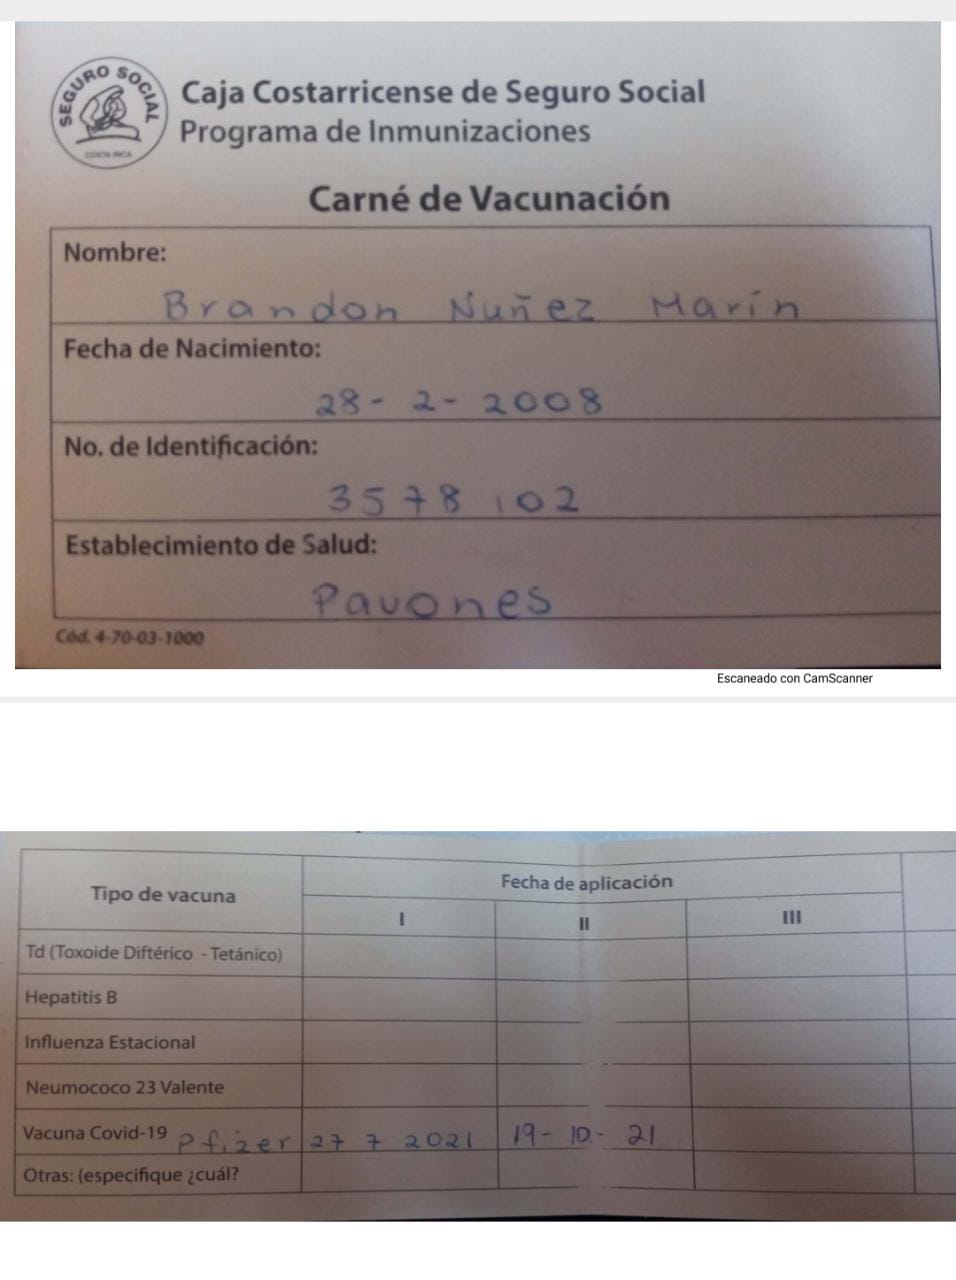 SEGURO SOCIAL
COSTA RICA
Caja Costarricense de Seguro Social
Programa de Inmunizaciones
Carné de Vacunación
Nombre:
Brandon Nuñez Marín
Fecha de Nacimiento:
28-2-2008
No. de Identificación:
3578 102
Establecimiento de Salud:
Pavones
Cód. 4-70-03-1000
Escaneado con CamScanner
Tipo de vacuna
Fecha de aplicación
I II III
Td (Toxoide Diftérico - Tetánico)
Hepatitis B
Influenza Estacional
Neumococo 23 Valente
Vacuna Covid-19 Pfizer 27 7 2021 19-10-21
Otras: (especifique ¿cuál?